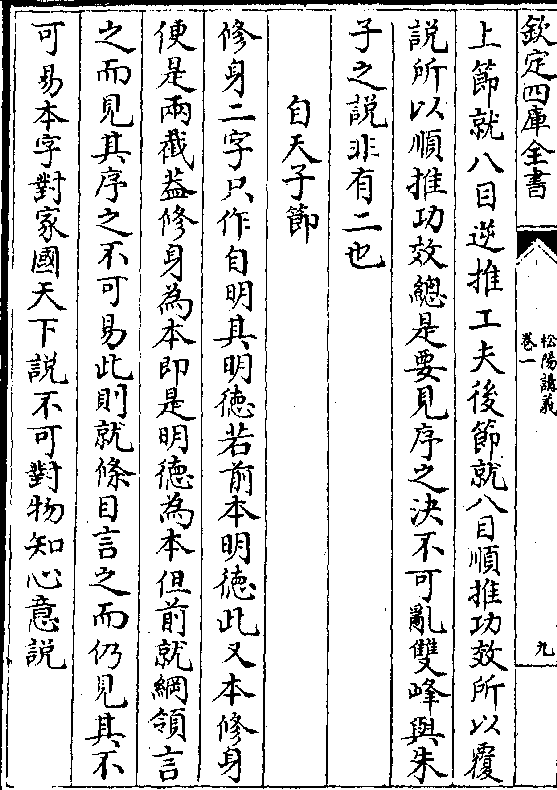 欽定四庫全書
松陽講義
卷一
九
上節就八目逆推工夫後節就八目順推功效所以覆
說所以順推功效總是要見序之決不可亂雙峰與朱
子之說非有二也
自天子節
修身二字只作自明其明德若前本明德此又本修身
便是兩截葢修身為本即是明德為本但前就綱領言
之而見其序之不可易此則就條目言之而仍見其不
可易本字對家國天下說不可對物知心意說